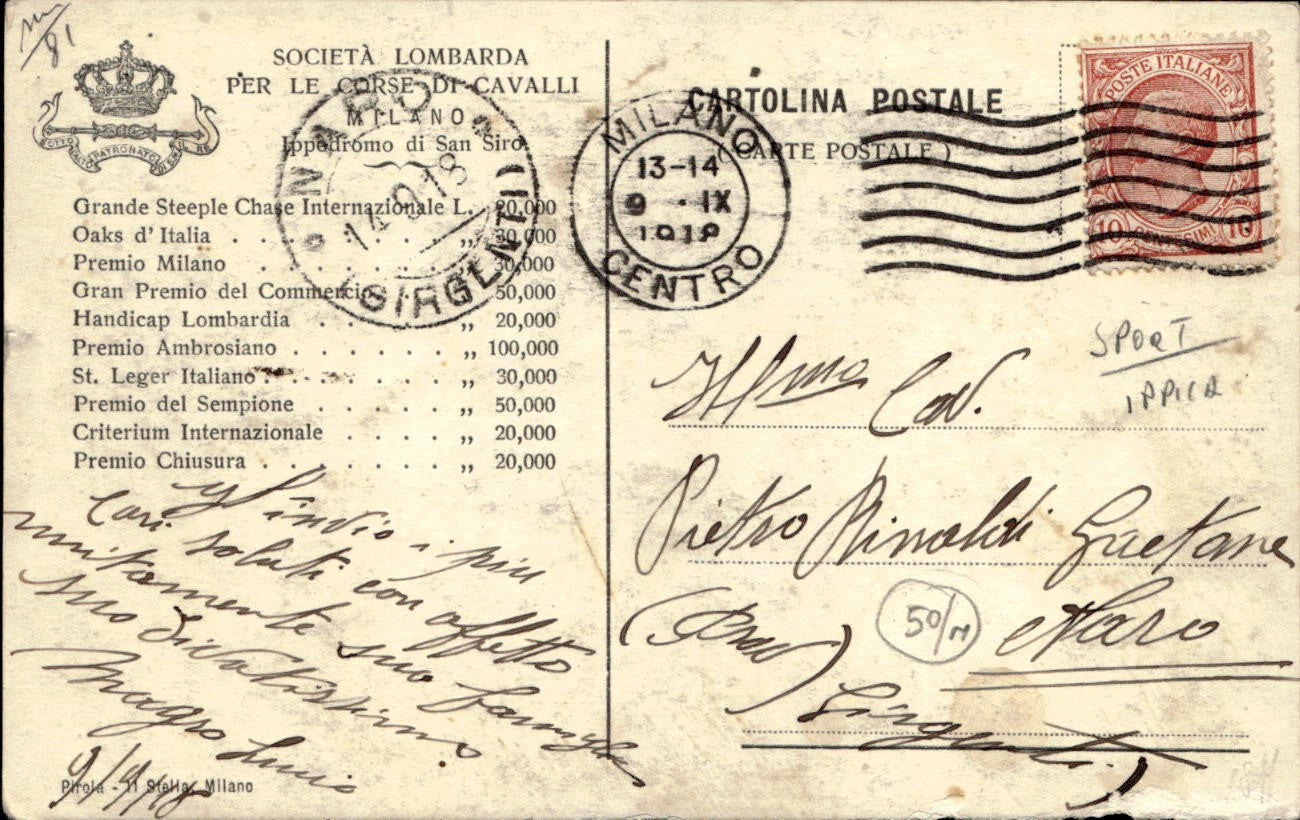 SOCIETÀ LOMBARDA
PER LE CORSE DI CAVALLI
MILANO
Ippodromo di San Siro
SOTTO L'ALTO PATRONATO DI S.M. IL RE
Grande Steeple Chase Internazionale L. 20,000
Oaks d'Italia . . . . . . . . „ 30,000
Premio Milano . . . . . . . „ 30,000
Gran Premio del Commercio . . . „ 50,000
Handicap Lombardia . . . . . „ 20,000
Premio Ambrosiano . . . . . . „ 100,000
St. Leger Italiano . . . . . . „ 30,000
Premio del Sempione . . . . . „ 50,000
Criterium Internazionale . . . . „ 20,000
Premio Chiusura . . . . . . . „ 20,000
NARO
14.9.18
(GIRGENTI)
Gl'invio i più
cari saluti con affetto
unitamente sua famiglia
suo Divotissimo
Magro Lucio
9/9/18
Pirola - 11 Stella, Milano
CARTOLINA POSTALE
(CARTE POSTALE)
MILANO
13-14
9 . IX
1918
CENTRO
POSTE ITALIANE
10 CENTESIMI 10
SPORT
IPPICA
Ill/mo Cav.
Pietro Rinaldi Gaetano
50/M
Naro
(Prov
Girgenti)